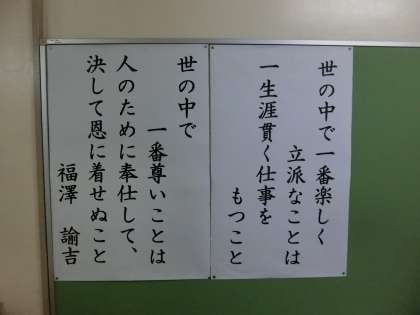 世の中で一番楽しく
立派なことは
一生涯貫く仕事を
もつこと
世の中で
一番尊いことは
人のために奉仕して、
決して恩に着せぬこと
福澤 諭吉